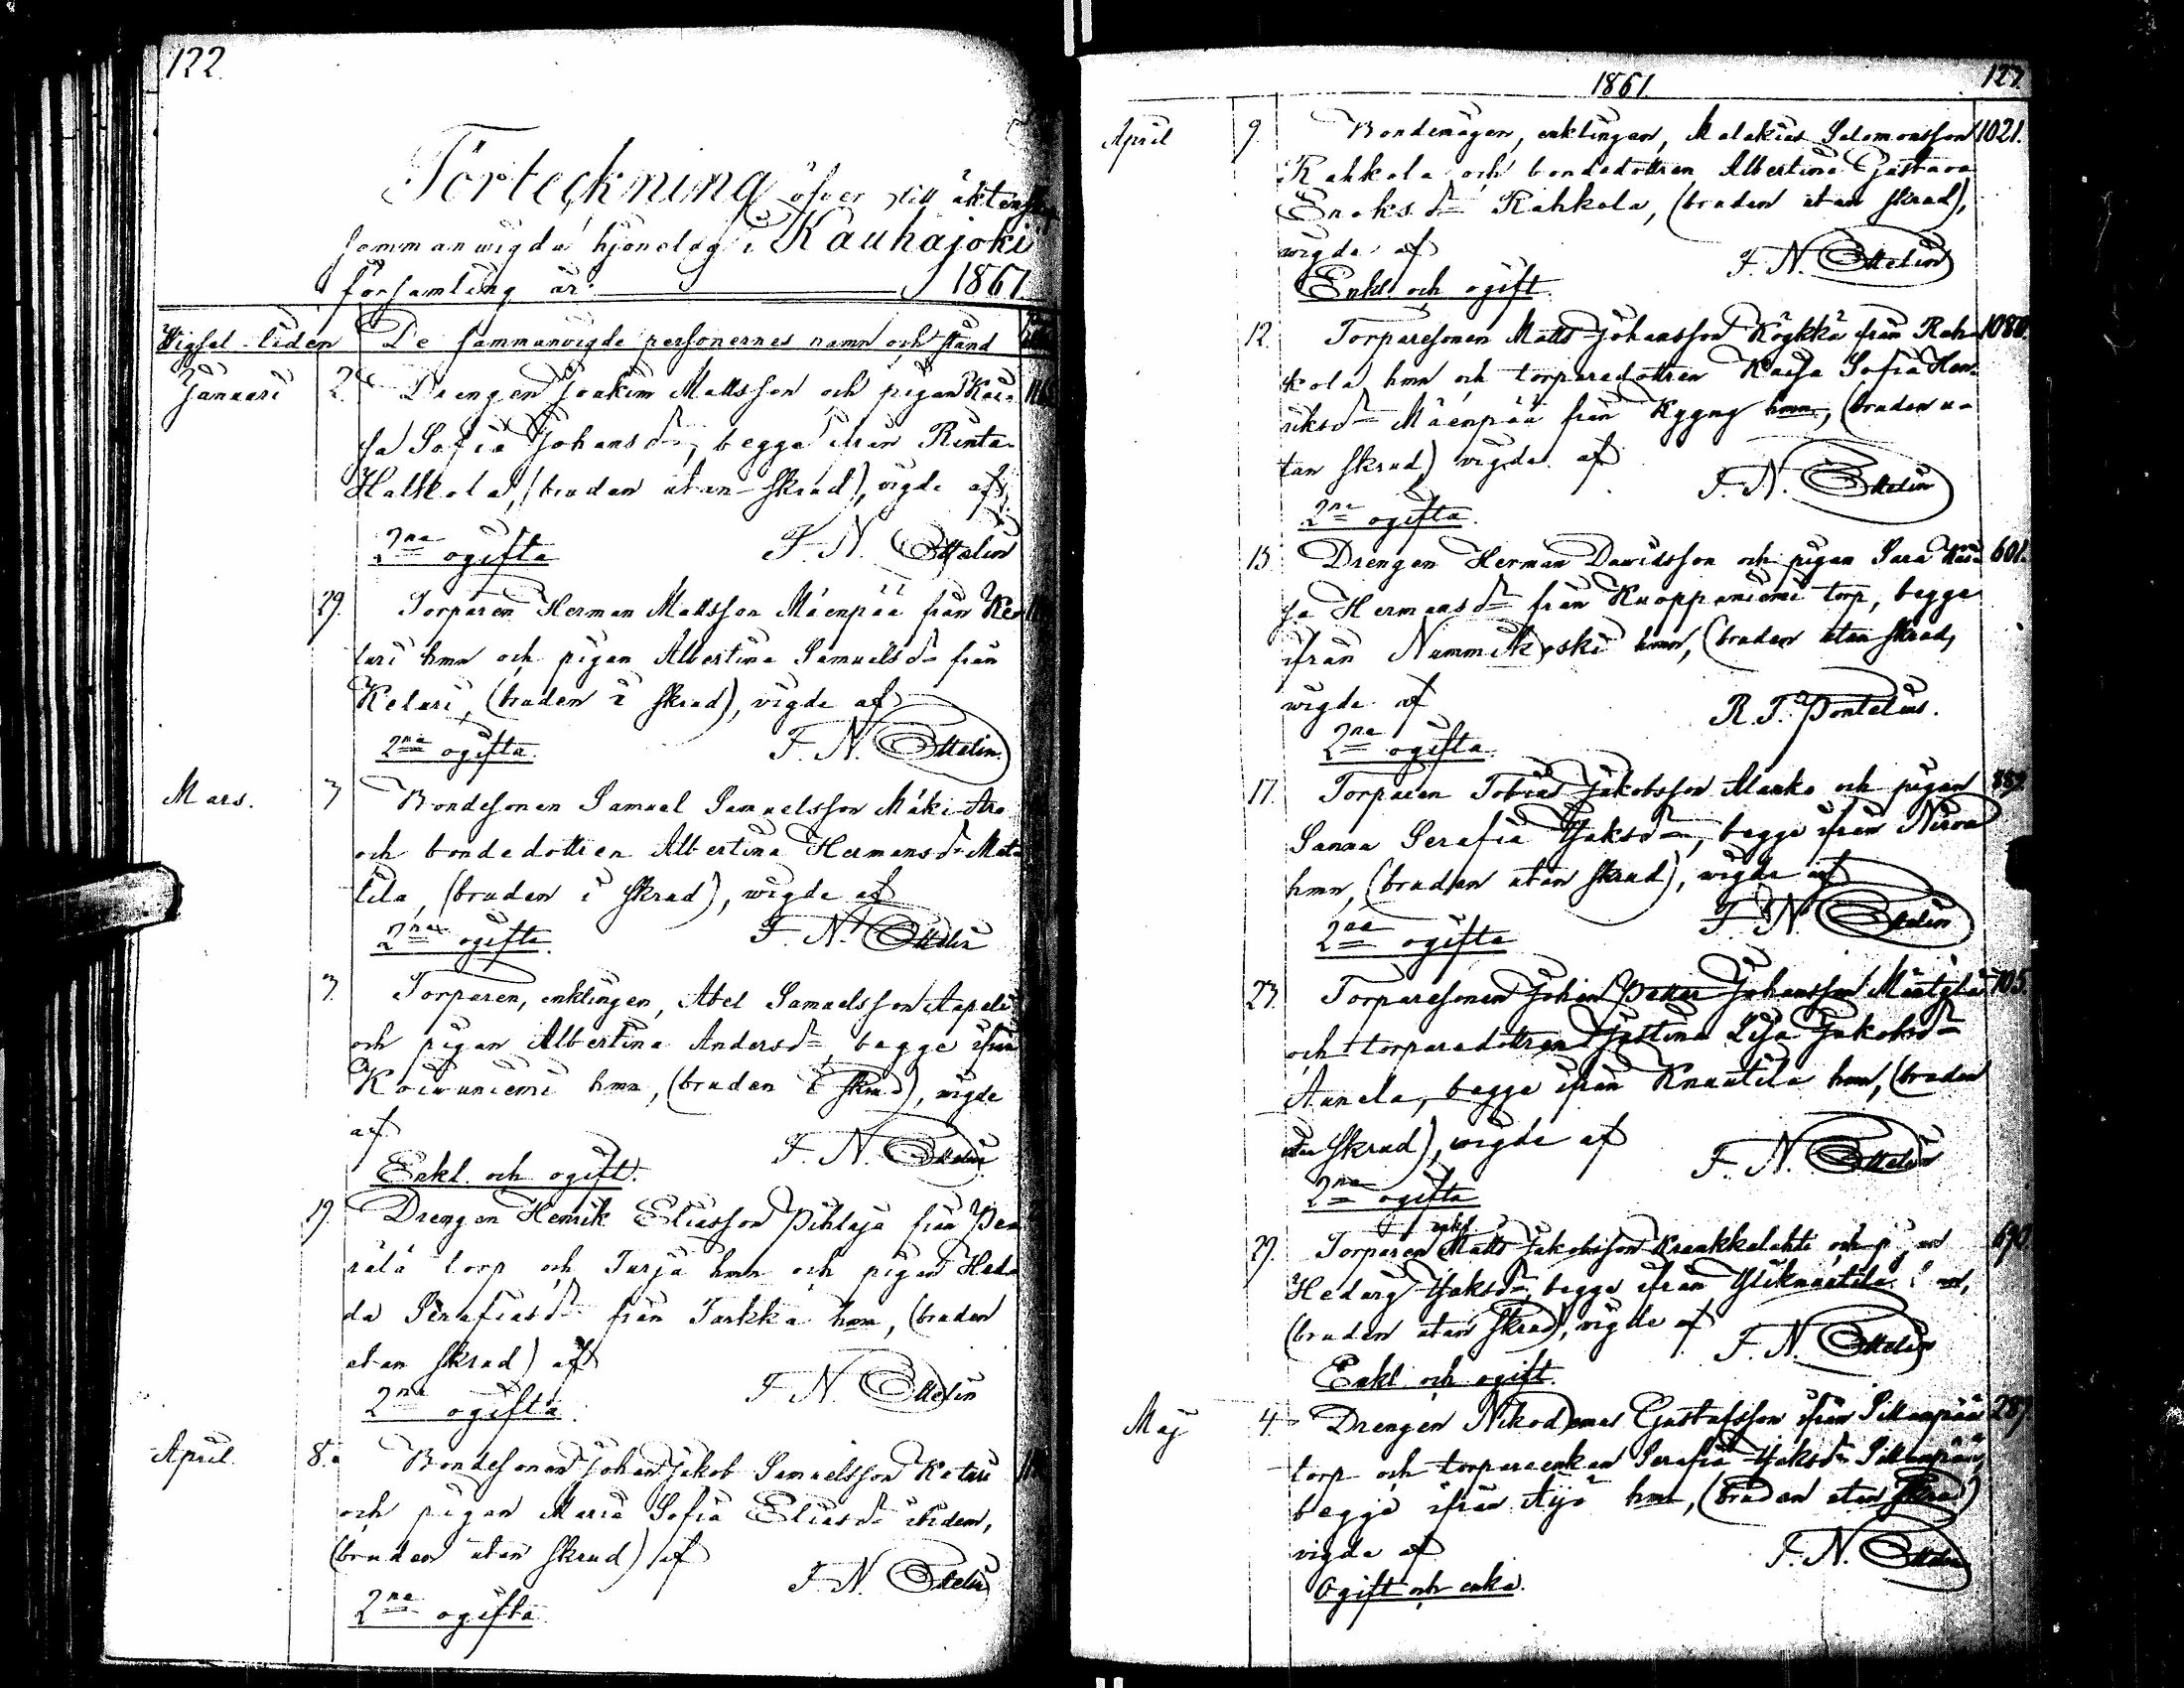 122.
Förteckning öfver till äktenskap
sammanwigda hjonelag i Kauhajoki
församling år 1861.
Wigsel-tiden De sammanvigde personernes namn och stånd
Januari 2. Drengen Joakim Mattsson och pigan Kai-
sa Sofia Johansdr, begge ifrån Rinta-
Halkola, (bruden utan skrud), vigde af
2ne ogifta F. N. Ottelin
29. Torparen Herman Mattsson Mäenpää från Ke-
turi hmn och pigan Albertina Samuelsdr från
Keturi, (bruden i skrud), vigde af
2ne ogifta. F. N. Ottelin.
Mars. 3 Bondesonen Samuel Samuelsson Mäki-Aro
och bondedottren Albertina Hermansdr Mat-
tila, (bruden i skrud), wigde af
2ne ogifta. F. N. Ottelin
3. Torparen, enklingen, Abel Samuelsson Aapeli
och pigan Albertina Andersdr, begge ifrån
Koivuniemi hmn, (bruden i skrud), wigde
af F. N. Ottelin
Enkl. och ogift.
19. Drengen Henrik Eliasson Pihlaja från
torp och Turja hmn och pigan Hed-
da Serafiasdr från Tarkka hmn, (bruden
utan skrud) af
2ne ogifta. F. N. Ottelin
April. 8. Bondesonen Johan Jakob Samuelsson Keturi
och pigan Maria Sofia Eliasdr ibidem,
(bruden utan skrud) af F. N. Ottelin
2ne ogifta.
1861. 123.
April 9. Bondemågen, enklingen, Malakias Salomonsson 1021.
Rahkola och bondedottren Albertina Gustava
Enoksdr Rahkola, (bruden utan skrud),
wigde af F. N. Ottelin
Enkl. och ogift.
12. Torparesonen Matts Johansson Köykkä från Rah- 1080.
kola hmn och torparedottren Kaisa Sofia Hen-
riksdr Mäenpää från Kyyny hmn, (bruden u-
tan skrud) vigde af F. N. Ottelin
2ne ogifta.
13. Drengen Herman Davidsson och pigan Sara Kai- 601.
sa Hermansdr från Kuoppaniemi torp, begge
ifrån Nummikoski hmn, (bruden utan skrud,
wigde af R. T. Pontelius.
2ne ogifta.
17. Torparen Tobias Jakobsson Marko och pigan
Sanna Serafia Isaksdr, begge ifrån Nirva
hmn, (bruden utan skrud), wigde af
2ne ogifta F. N. Ottelin
23. Torparesonen Johan Petter Johansson Mäntylä 705.
och torparedottren Justina Lisa Jakobsdr
Aunela, begge ifrån Knuutila hmn, (bruden
utan skrud), wigde af F. N. Ottelin
2ne ogifta
enkl.
29. Torparen Matts Jakobsson Kraakkalahti och pigan 690.
Hedvig Isaksdr, begge ifrån Yliknuutila hmn,
(bruden utan skrud), vigde af F. N. Ottelin
Enkl. och ogift.
Maj 4. Drengen Nikodemus Gustafsson ifrån Sillanpää 287.
torp och torpareenkan Serafia Isaksdr Sillanpää,
begge ifrån Äijö hmn, (bruden utan skrud)
vigde af F. N. Ottelin
Ogift och enka.